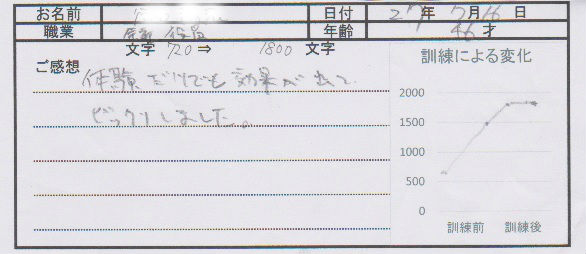 お名前 日付 27年 7月 16日
職業 役員 年齢 46才
文字 720 ⇒ 1800 文字
ご感想
体験だけでも効果が出て
ビックリしました。
訓練による変化
2000
1500
1000
500
0
訓練前 訓練後